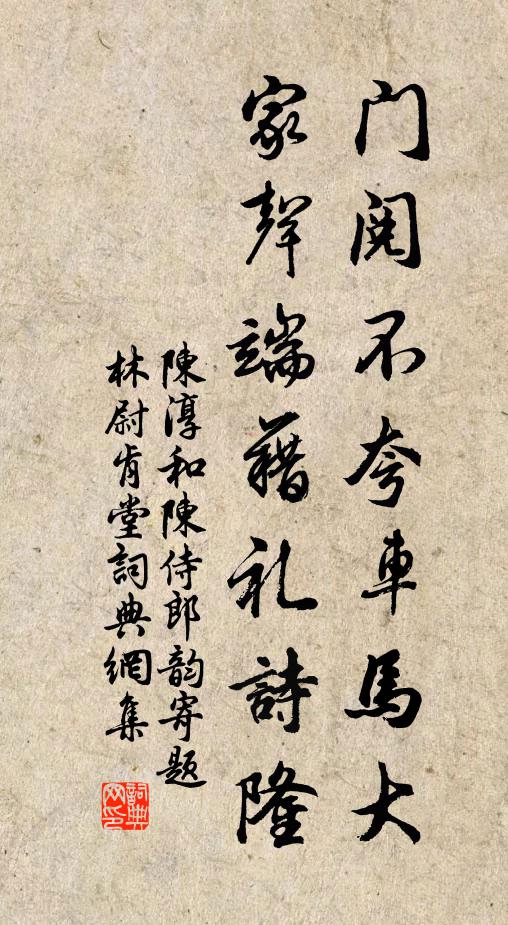 门阀不夸車馬大
家聲端藉礼詩隆
陳淳和陳侍郎韵寄题
林尉肯堂詞典網集
詞典网印